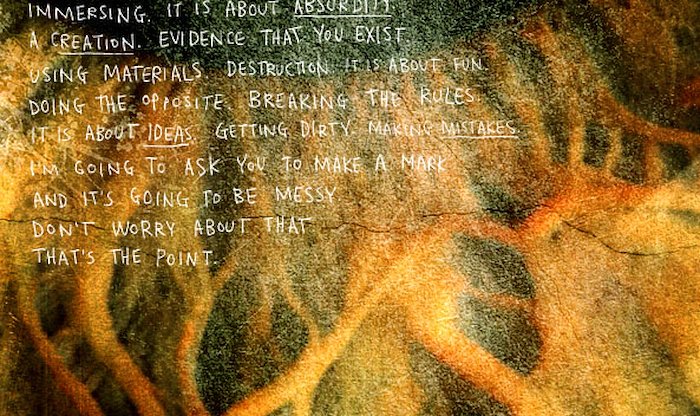 IMMERSING. IT IS ABOUT ABSURDITY.
A CREATION. EVIDENCE THAT YOU EXIST.
USING MATERIALS. DESTRUCTION. IT IS ABOUT FUN.
DOING THE OPPOSITE. BREAKING THE RULES.
IT IS ABOUT IDEAS. GETTING DIRTY. MAKING MISTAKES.
I'M GOING TO ASK YOU TO MAKE A MARK
AND IT'S GOING TO BE MESSY
DON'T WORRY ABOUT THAT
THAT'S THE POINT.